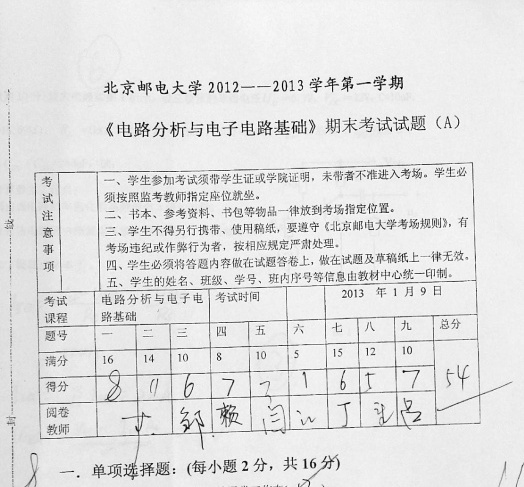 北京邮电大学 2012——2013 学年第一学期
《电路分析与电子电路基础》期末考试试题（A）
考试注意事项
一、学生参加考试须带学生证或学院证明，未带者不准进入考场。学生必
须按照监考教师指定座位就坐。
二、书本、参考资料、书包等物品一律放到考场指定位置。
三、学生不得另行携带、使用稿纸，要遵守《北京邮电大学考场规则》，有
考场违纪或作弊行为者，按相应规定严肃处理。
四、学生必须将答题内容做在试题答卷上，做在试题及草稿纸上一律无效。
五、学生的姓名、班级、学号、班内序号等信息由教材中心统一印制。
考试课程 电路分析与电子电路基础 考试时间 2013 年 1 月 9 日
题号 一 二 三 四 五 六 七 八 九 总分
满分 16 14 10 8 10 5 15 12 10
得分 8 11 6 7 1 6 5 7 54
阅卷教师 邹 赖 闫 江 丁 吕
一．单项选择题：(每小题 2 分，共 16 分)